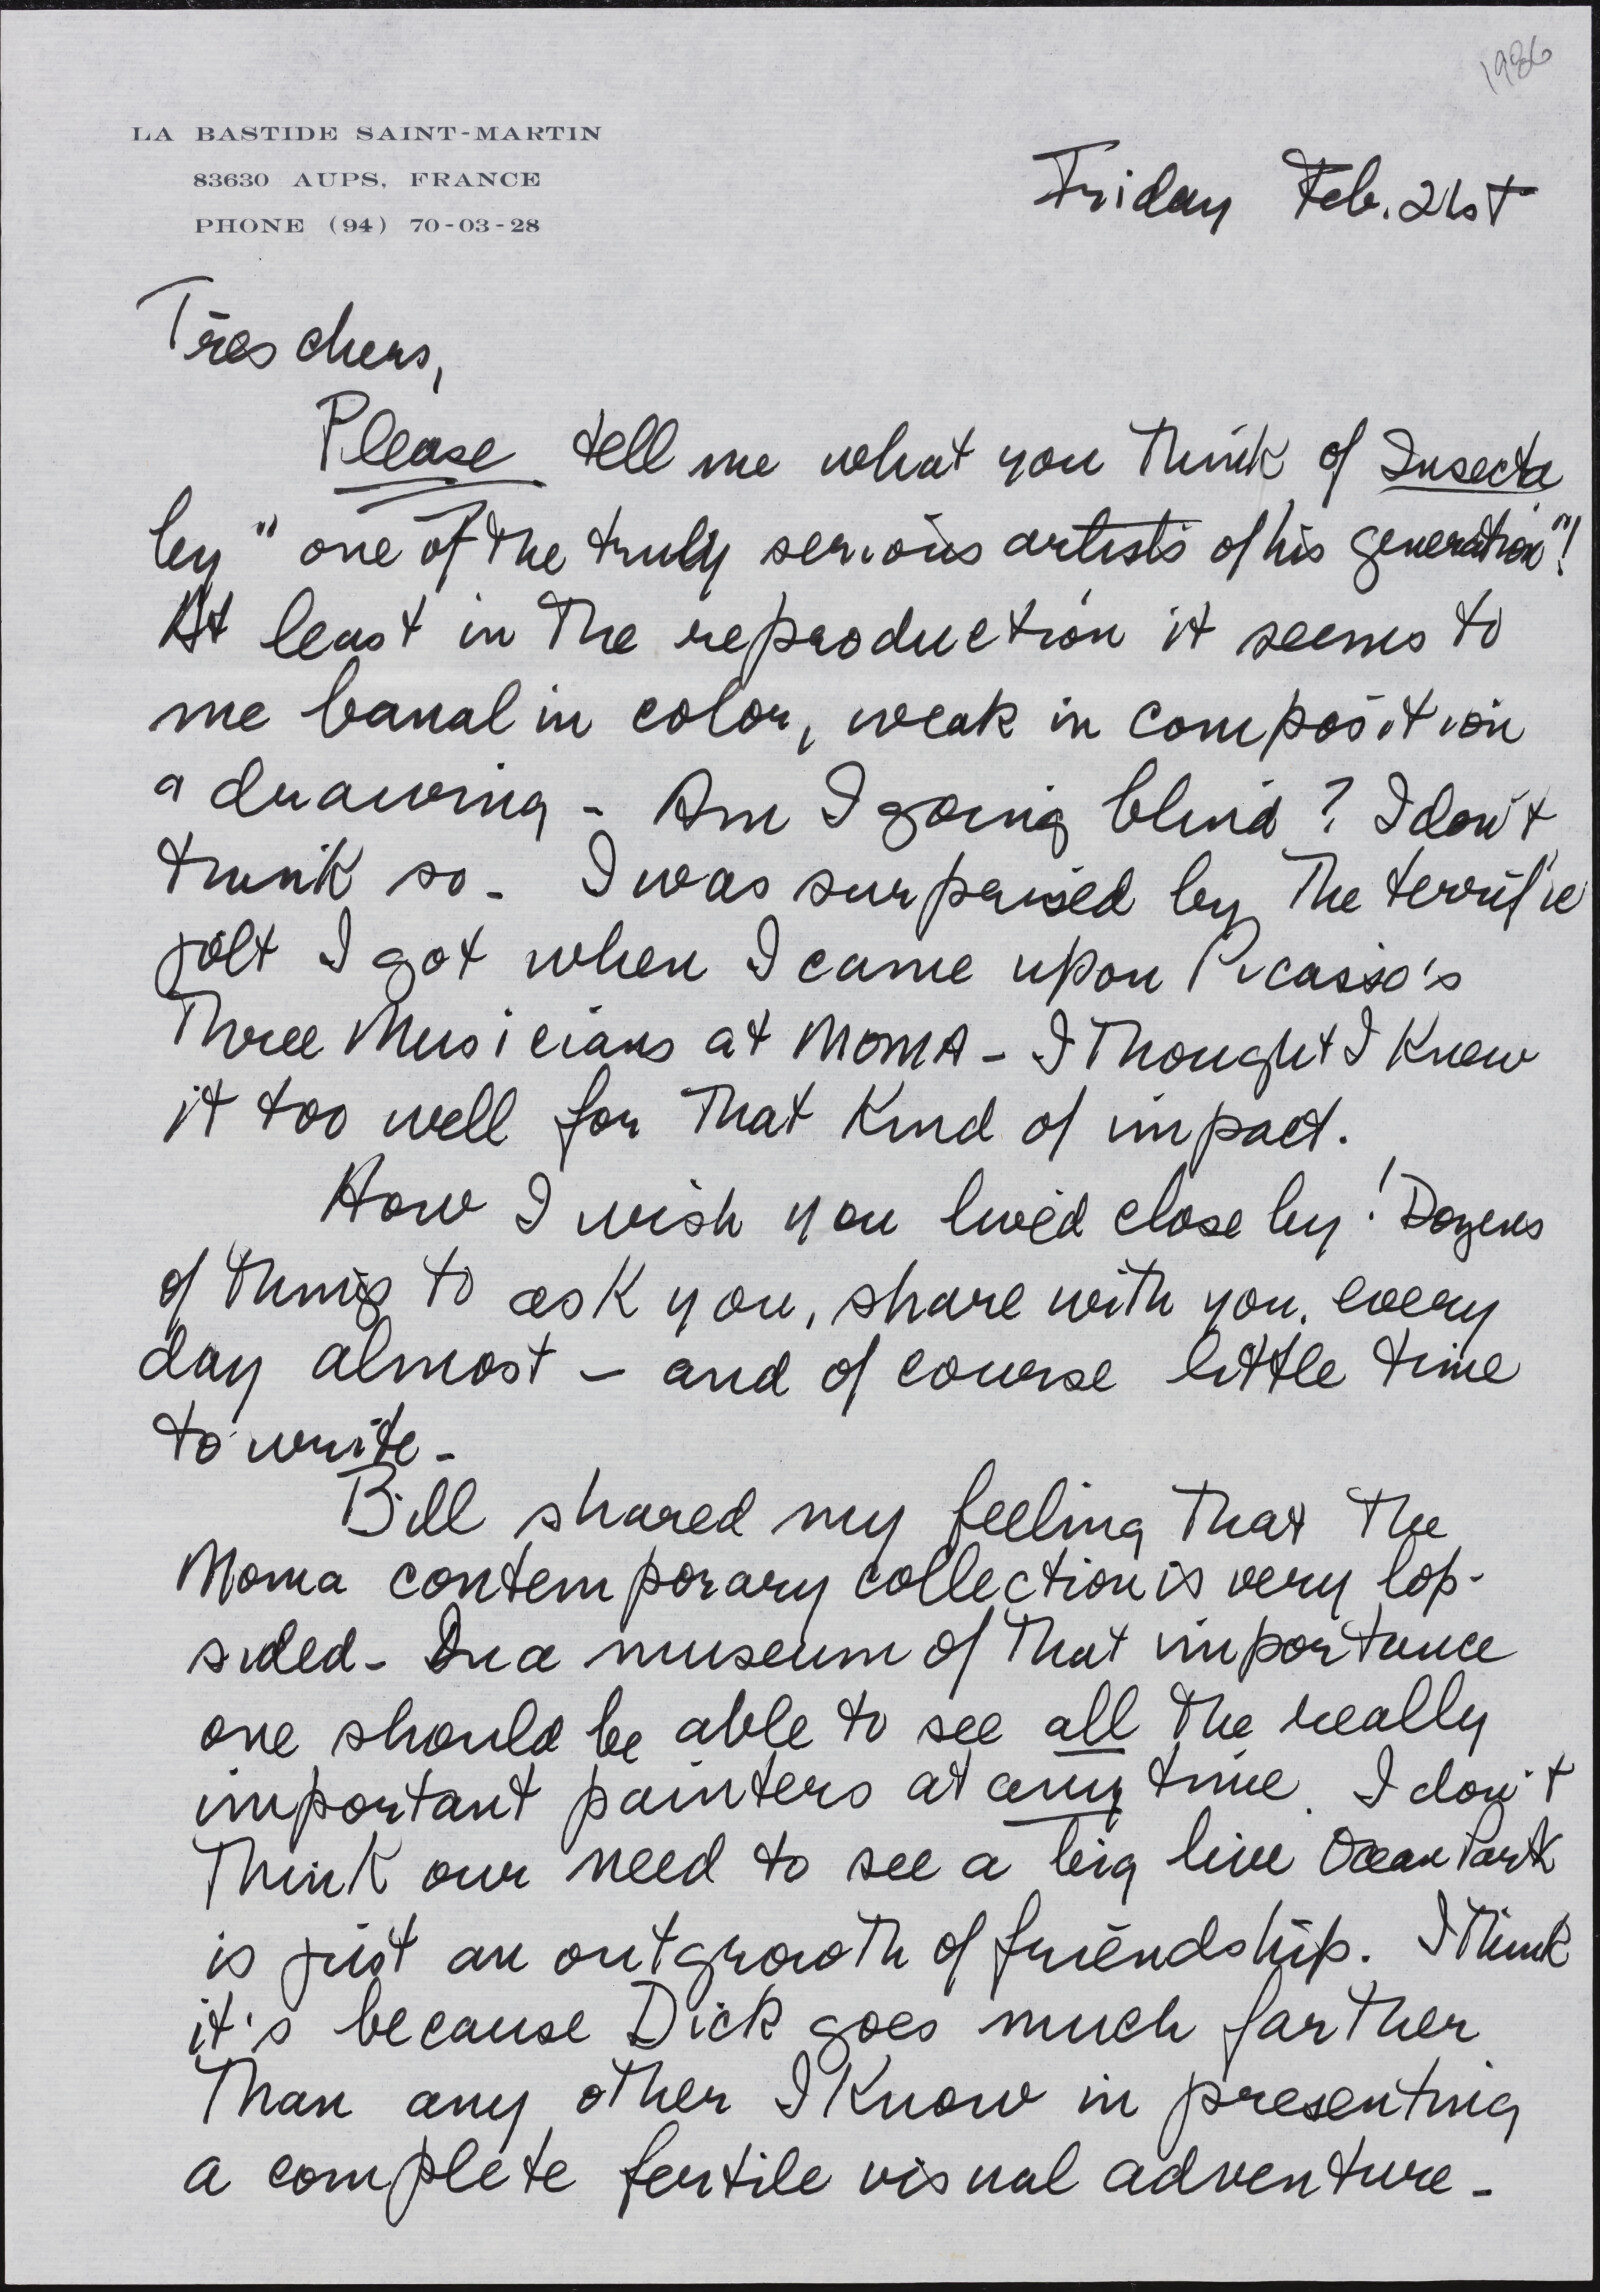 1986
LA BASTIDE SAINT-MARTIN
83630 AUPS, FRANCE
PHONE (94) 70-03-28
Friday Feb. 21st
Très chers,
Please tell me what you think of Insecte
by "one of the truly serious artists of his generation"!
At least in the reproduction it seems to
me banal in color, weak in composition
a drawing - Am I going blind? I don't
think so - I was surprised by the terrific
jolt I got when I came upon Picasso's
Three Musicians at MOMA - I thought I knew
it too well for that kind of impact.
How I wish you lived close by! Dozens
of things to ask you, share with you, every
day almost - and of course little time
to write -
Bill shared my feeling that the
Moma contemporary collection is very lop-
sided - In a museum of that importance
one should be able to see all the really
important painters at any time. I don't
think our need to see a big live Ocean Park
is just an outgrowth of friendship. I think
it's because Dick goes much farther
than any other I know in presenting
a complete fertile visual adventure -